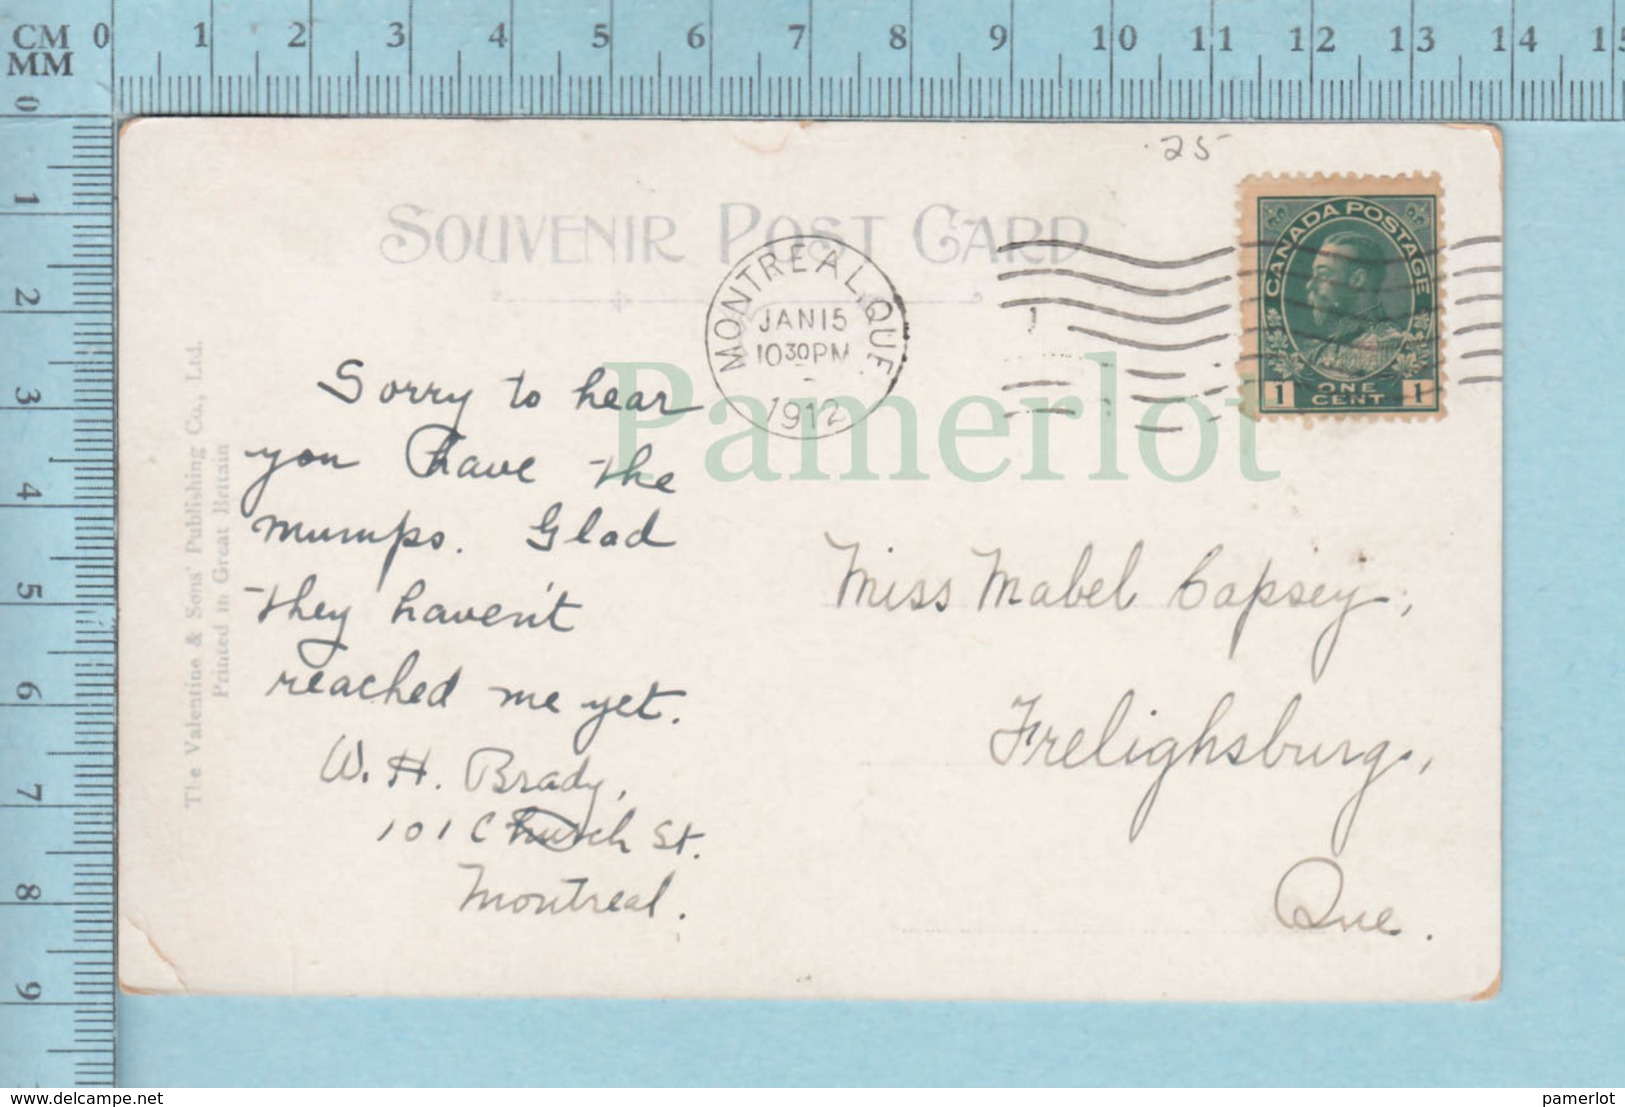 CM 0 1 2 3 4 5 6 7 8 9 10 11 12 13 14 15
MM
0 1 2 3 4 5 6 7 8 9
25
SOUVENIR POST CARD
MONTREAL, QUE.
JAN 15
10 30 PM
1912
CANADA POSTAGE
1 ONE CENT 1
The Valentine & Sons' Publishing Co., Ltd.
Printed in Great Britain
Pamerlot
Sorry to hear
you have the
mumps. Glad
they haven't
reached me yet.
W. H. Brady,
101 Church St.
Montreal.
Miss Mabel Capsey,
Frelighsburg,
Que.
Delcampe.net
pamerlot